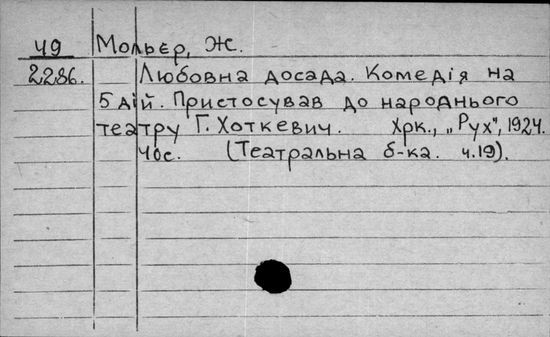 49 Мольєр, Ж.
2286. Любовна досада. Комедія на
5 дій. Пристосував до народнього
театру Г. Хоткевич. Хрк., „Рух", 1924.
40с. (Театральна б-ка. ч.19).